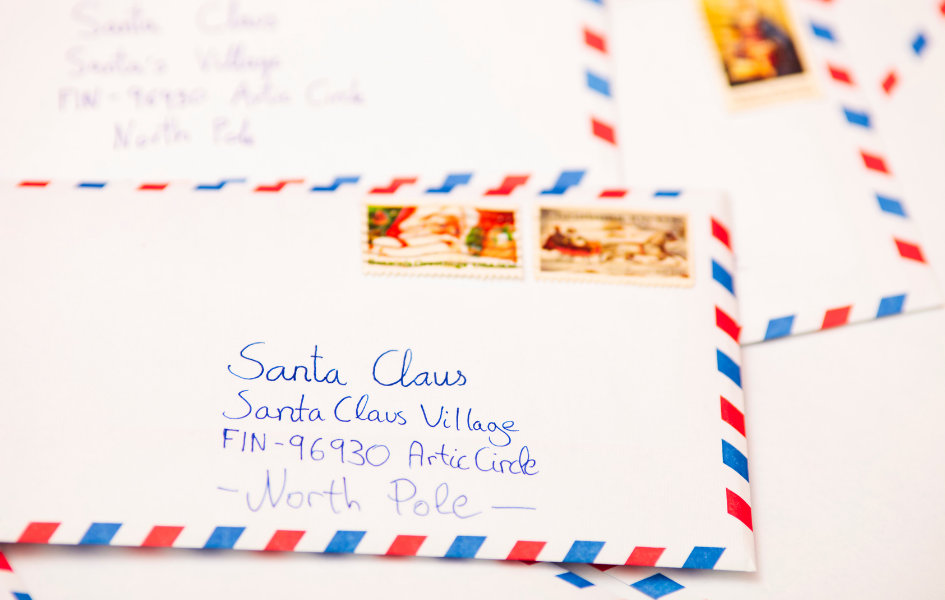 Santa Claus
Santa's Village
FIN-96930 Artic Circle
North Pole
Santa Claus
Santa Claus Village
FIN-96930 Artic Circle
-North Pole-